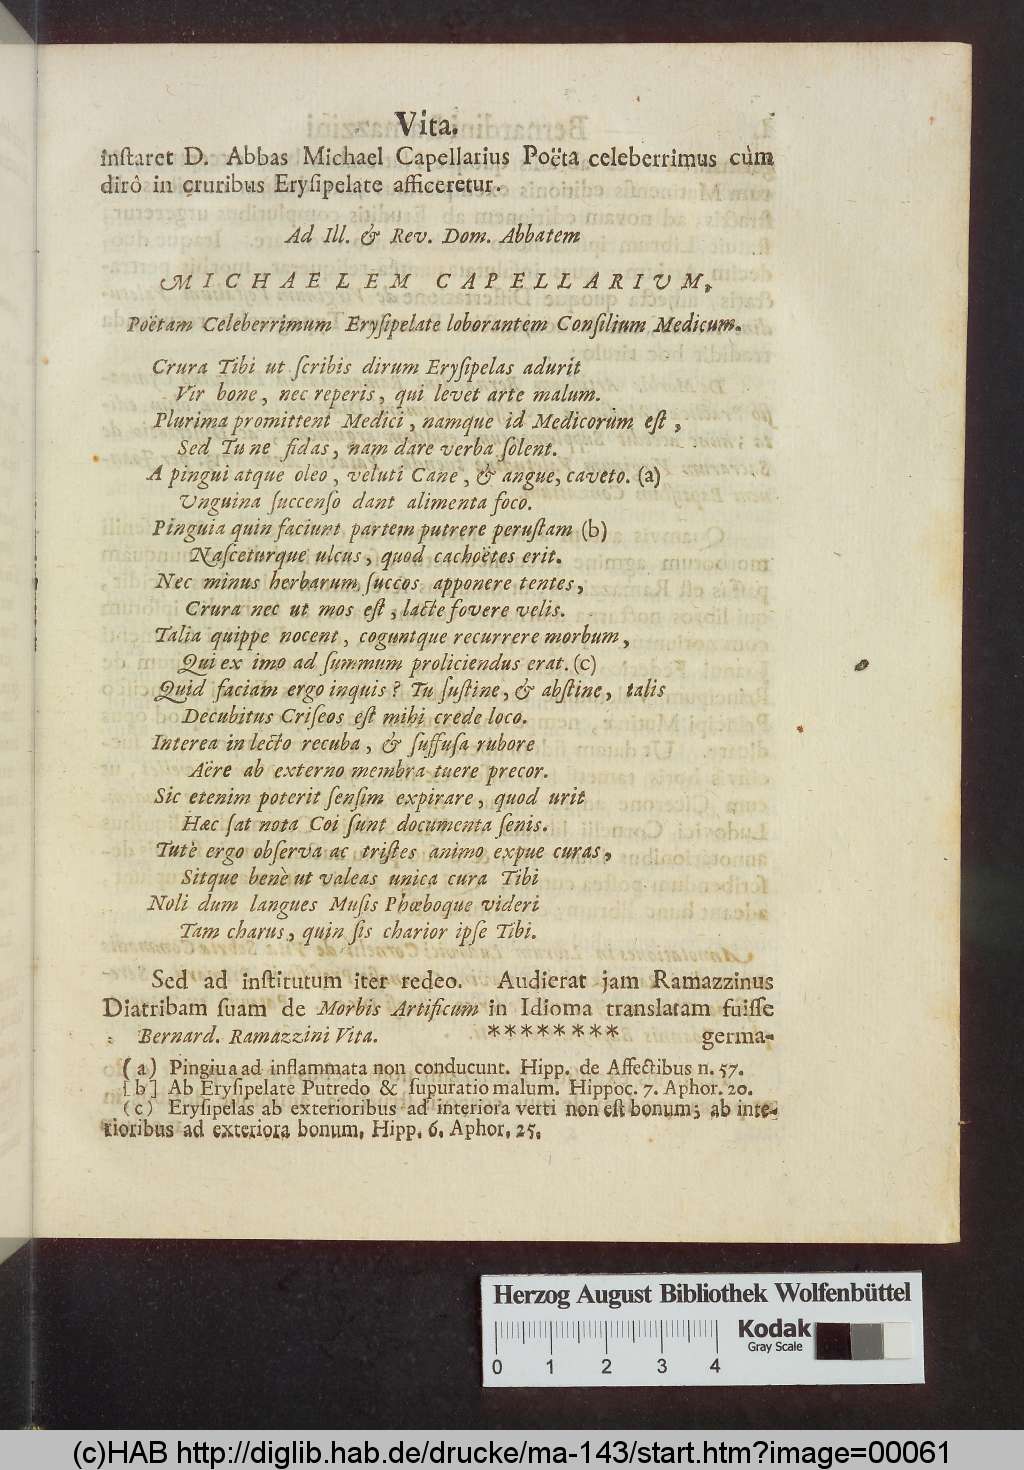 Vita.
inſtaret D. Abbas Michael Capellarius Poëta celeberrimus cùm
dirô in cruribus Eryſipelate afficeretur.
Ad Ill. & Rev. Dom. Abbatem
MICHAELEM CAPELLARIVM,
Poëtam Celeberrimum Eryſipelate loborantem Conſilium Medicum.
Crura Tibi ut ſcribis dirum Eryſipelas adurit
Vir bone, nec reperis, qui levet arte malum.
Plurima promittent Medici, namque id Medicorùm eſt,
Sed Tu ne fidas, nam dare verba ſolent.
A pingui atque oleo, veluti Cane, & angue, caveto. (a)
Unguina ſuccenſo dant alimenta foco.
Pinguia quin faciunt partem putrere peruſtam (b)
Naſceturque ulcus, quod cachoëtes erit.
Nec minus herbarum ſuccos apponere tentes,
Crura nec ut mos eſt, lacte fovere velis.
Talia quippe nocent, coguntque recurrere morbum,
Qui ex imo ad ſummum proliciendus erat. (c)
Quid faciam ergo inquis? Tu ſuſtine, & abſtine, talis
Decubitus Criſeos eſt mihi crede loco.
Interea in lecto recuba, & ſuffuſa rubore
Aëre ab externo membra tuere precor.
Sic etenim poterit ſenſim expirare, quod urit
Hæc ſat nota Coi ſunt documenta ſenis.
Tutè ergo obſerva ac triſtes animo expue curas,
Sitque benè ut valeas unica cura Tibi
Noli dum langues Muſis Phœboque videri
Tam charus, quin ſis charior ipſe Tibi.
Sed ad inſtitutum iter redeo. Audierat jam Ramazzinus
Diatribam ſuam de Morbis Artificum in Idioma translatam fuiſſe
Bernard. Ramazzini Vita. ******** germa-
(a) Pingiua ad inflammata non conducunt. Hipp. de Affectibus n. 57.
[b] Ab Eryſipelate Putredo & ſupuratio malum. Hippoc. 7. Aphor. 20.
(c) Eryſipelas ab exterioribus ad interiora verti non eſt bonum; ab inte-
rioribus ad exteriora bonum, Hipp. 6. Aphor. 25.
Herzog August Bibliothek Wolfenbüttel
Kodak
Gray Scale
0 1 2 3 4
(c)HAB http://diglib.hab.de/drucke/ma-143/start.htm?image=00061